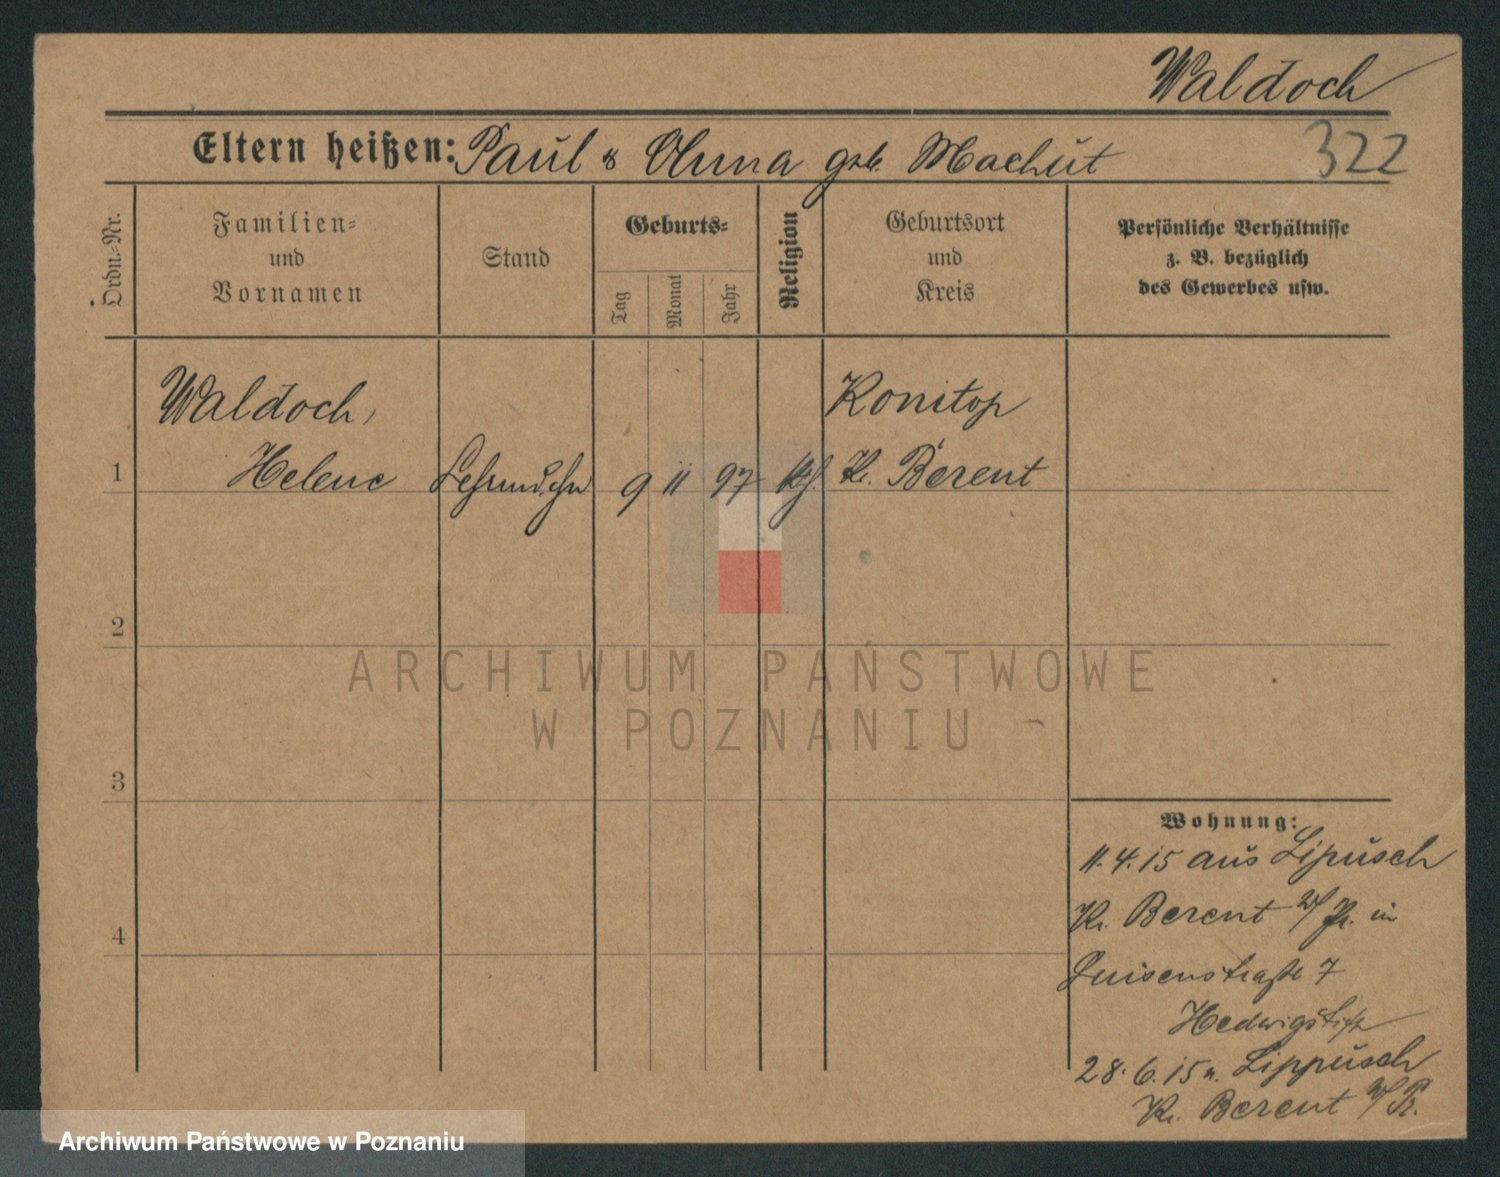 Waldoch
Eltern heißen: Paul & Anna geb. Machut
322
Ordn.-Nr.
Familien-
und
Vornamen
Stand
Geburts-
Tag
Monat
Jahr
Religion
Geburtsort
und
Kreis
Persönliche Verhältnisse
z. B. bezüglich
des Gewerbes usw.
Waldoch,
Konitop
1 Helene 9 11 97 kth. Kr. Berent
2
3
4
Wohnung:
11.4.15 aus Lipusch
Kr. Berent W/Pr. in
Luisenstraße 7
Hedwigstift
28.6.15 n. Lippusch
Kr. Berent W/Pr.
ARCHIWUM PAŃSTWOWE
W POZNANIU
Archiwum Państwowe w Poznaniu